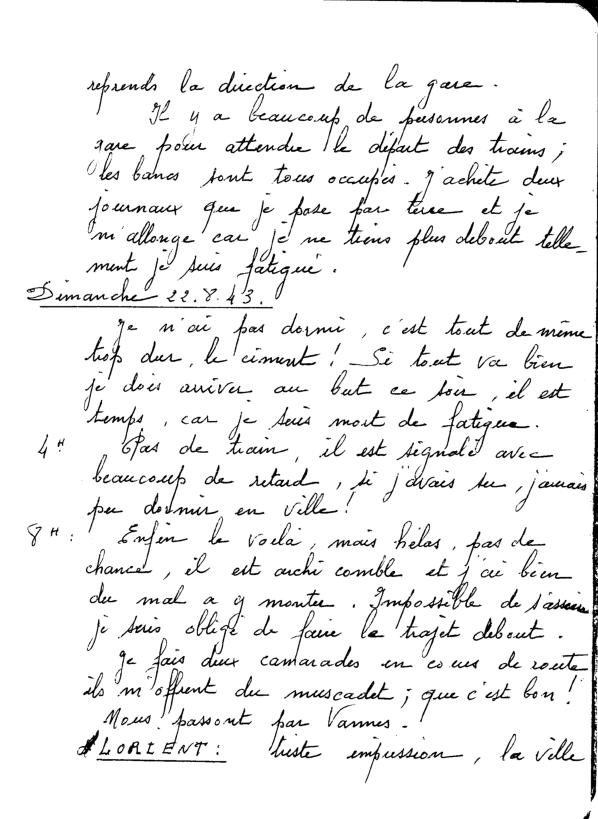 reprends la direction de la gare.
Il y a beaucoup de personnes à la
gare pour attendre le départ des trains ;
les bancs sont tous occupés. J'achète deux
journaux que je pose par terre et je
m'allonge car je ne tiens plus debout telle-
ment je suis fatigué.
Dimanche 22.8.43.
Je n'ai pas dormi, c'est tout de même
trop dur, le ciment ! Si tout va bien
je dois arriver au but ce soir, il est
temps, car je suis mort de fatigue.
4H Pas de train, il est signalé avec
beaucoup de retard, si j'avais su, j'aurais
pu dormir en ville !
8H : Enfin le voilà, mais hélas, pas de
chance, il est archi comble et j'ai bien
du mal a y monter. Impossible de s'asseoir
je suis obligé de faire le trajet debout.
Je fais deux camarades en cours de route
ils m'offrent du muscadet ; que c'est bon !
Nous passont par Vannes.
LORIENT : triste impression, la ville